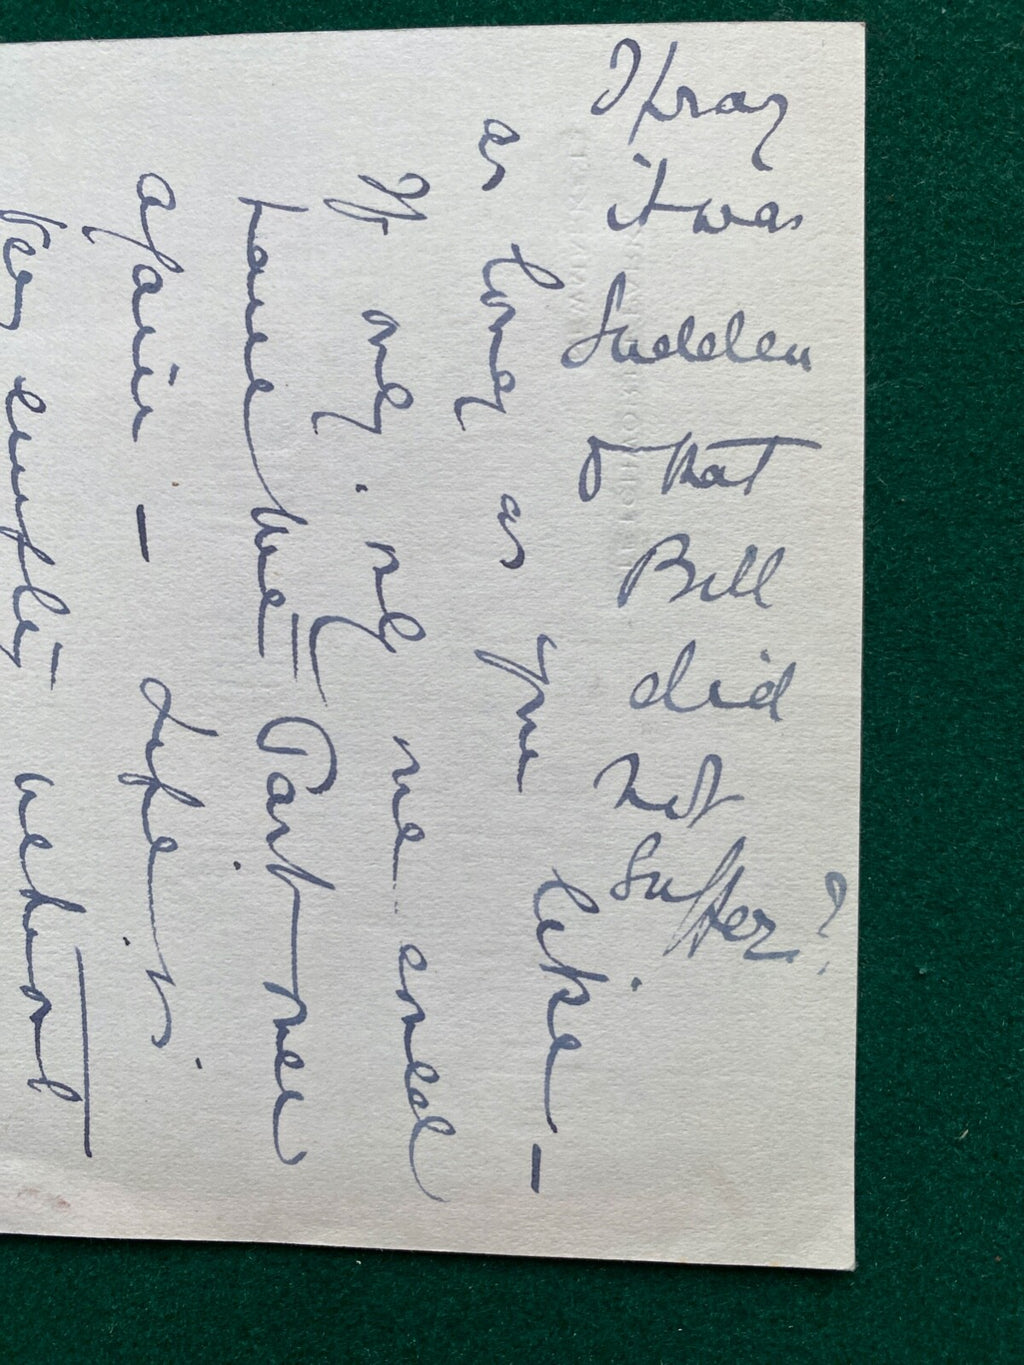 I pray
it was
Sudden
& that
Bill
did
not
Suffer?
as long as you like —
If only, only we could
have the Past once
again — Life is
very empty without